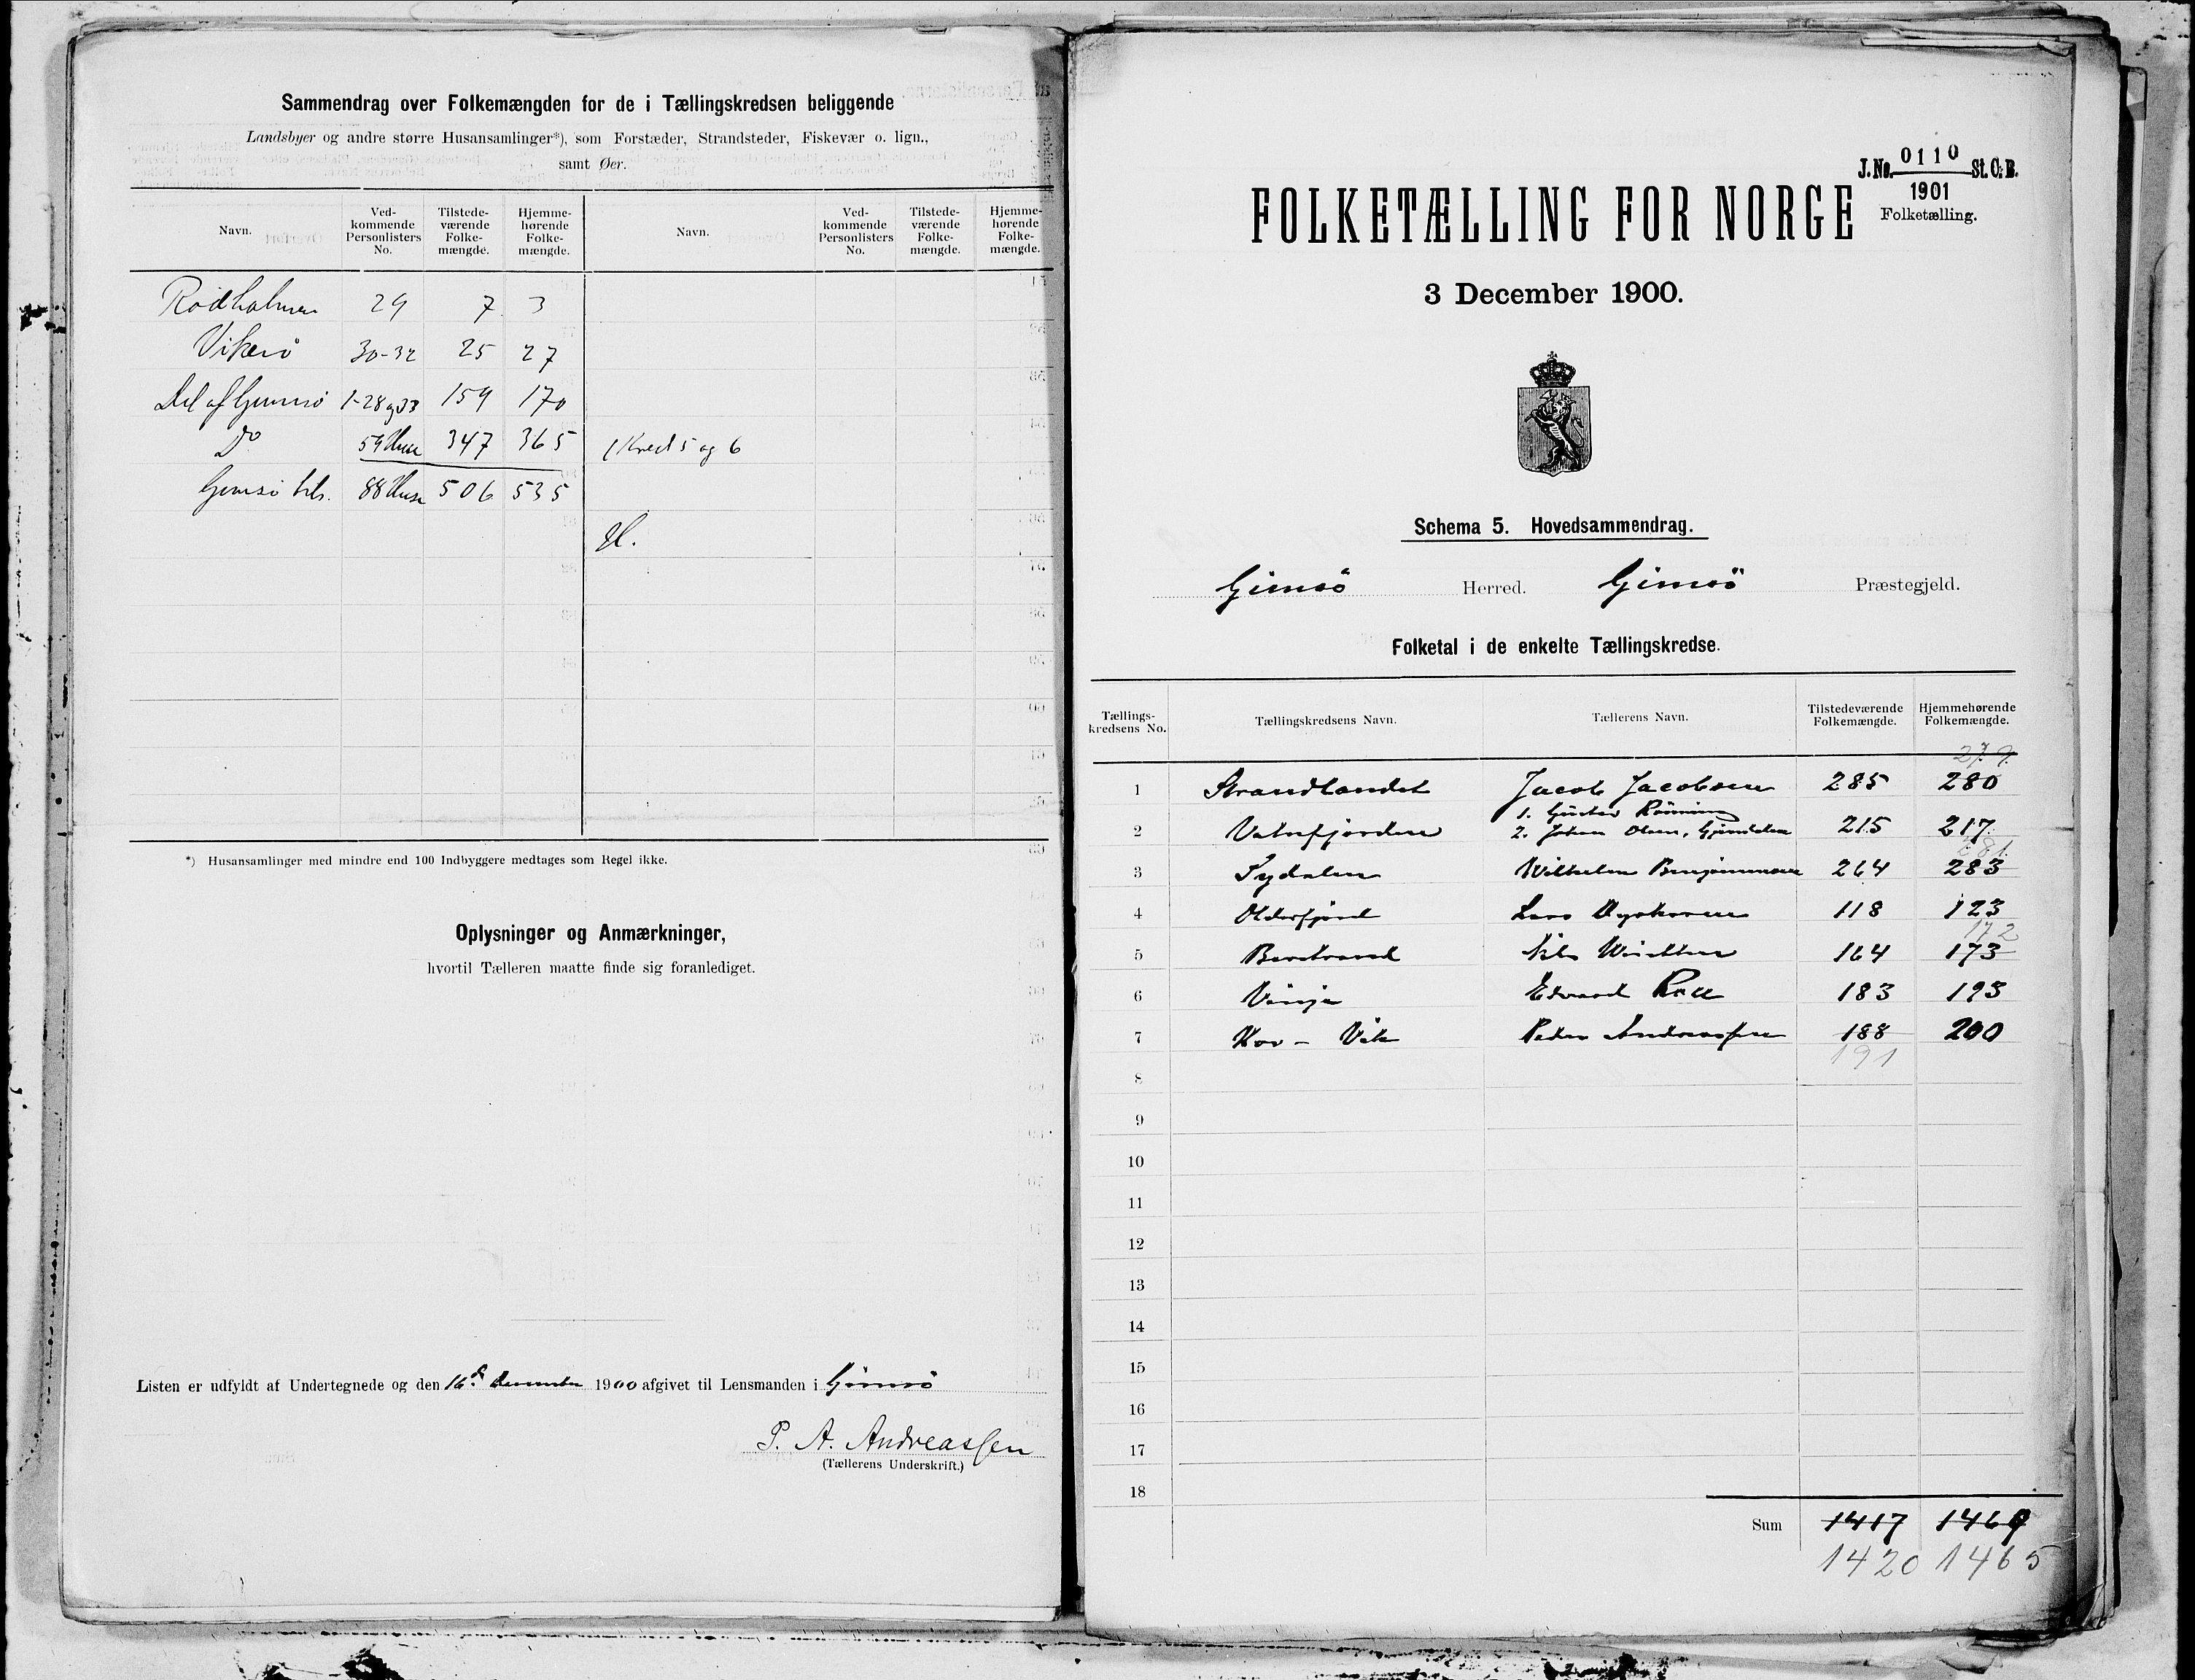 Sammendrag over Folkemængden for de i Tællingskredsen beliggende
Landsbyer og andre større Husansamlinger*), som Forstæder, Strandsteder, Fiskevær o. lign.,
samt Øer.
Navn. Ved-kommende Personlisters No. Tilstede-værende Folke-mængde. Hjemme-hørende Folke-mængde. Navn. Ved-kommende Personlisters No. Tilstede-værende Folke-mængde. Hjemme-hørende Folke-mængde.
Rödholmen 29 7 3
Vikerö 30-32 25 27
Del af Gimsö 1-28 og 33 159 170
Do 59 Huse 347 365 (Kred 5 og 6
Gimsö 88 Huse 506 535
H.
*) Husansamlinger med mindre end 100 Indbyggere medtages som Regel ikke.
Oplysninger og Anmærkninger,
hvortil Tælleren maatte finde sig foranlediget.
Listen er udfyldt af Undertegnede og den 16d December 1900 afgivet til Lensmanden i Gimsö
P. A. Andreassen
(Tællerens Underskrift.)
J. No. 0110 St. C. B.
1901
Folketælling.
FOLKETÆLLING FOR NORGE
3 December 1900.
Schema 5. Hovedsammendrag.
Gimsö Herred. Gimsö Præstegjeld.
Folketal i de enkelte Tællingskredse.
Tællings-kredsens No. Tællingskredsens Navn. Tællerens Navn. Tilstedeværende Folkemængde. Hjemmehørende Folkemængde.
279
1 Strandlandet Jacob Jacobsen 285 280
1. Gustav Rönning
2 Vatnfjorden 2. Johan Olsen, 215 217
281
3 Sydalen Wilhelm Benjaminsen 264 283
4 Olderfjord Lars 118 123
172
5 Barstrand Nils 164 173
6 Vinje Edvard 183 193
7 Hov - Vik Peder Andreassen 188 200
191
8
9
10
11
12
13
14
15
16
17
18
Sum 1417 1469
1420 1465